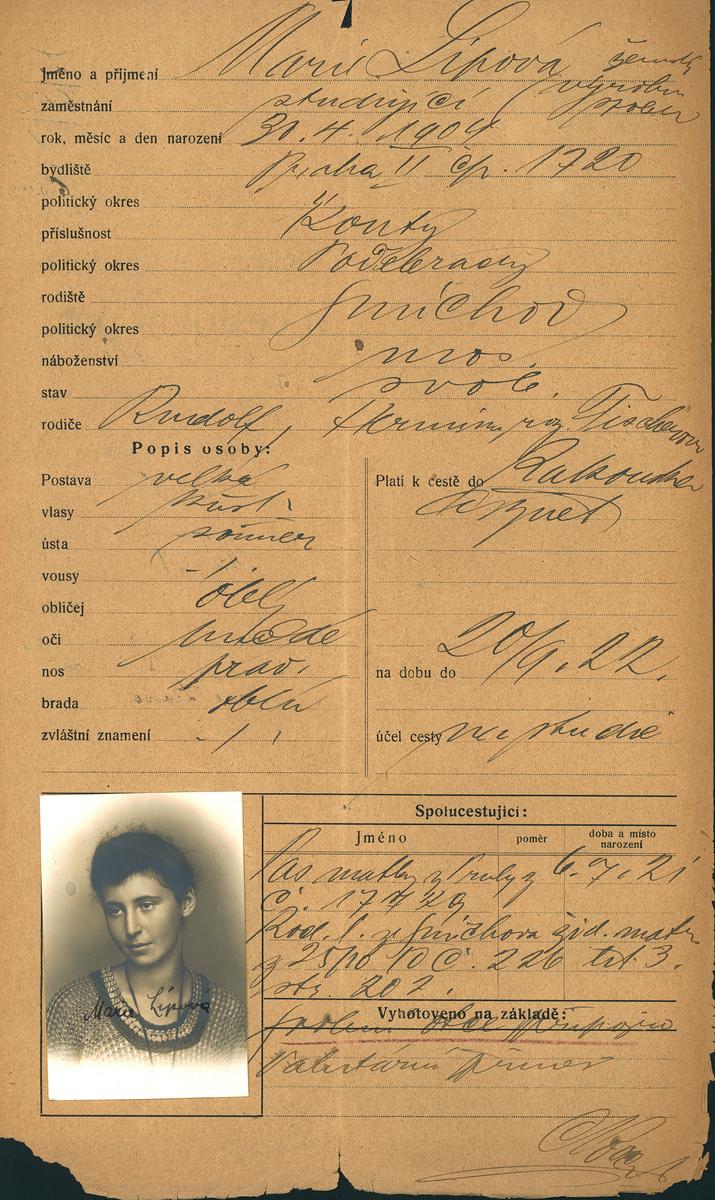 Jméno a příjmení Marie Lípová
zaměstnání studující
rok, měsíc a den narození 30. 4. 1904
bydliště Praha II čp. 1720
politický okres
příslušnost Kouty
politický okres Poděbrady
rodiště Smíchov
politický okres
náboženství mos.
stav svob.
rodiče Rudolf, Hermina roz. Fischerová
Popis osoby:
Postava velká
vlasy
ústa souměr
vousy - / -
obličej obl.
oči hnědé
nos prav.
brada oblá
zvláštní znamení - / -
Platí k cestě do Rakouska
na dobu do 20/9. 22.
účel cesty na studie
Marie Lípová
Spolucestující:
Jméno poměr doba a místo narození
Pas matky z Prahy z 6. 7. 21
č. 17449
Rod. l. ze Smíchova žid. matr.
z 25/10 10 č. 226 tit. 3.
str. 202.
Vyhotoveno na základě: